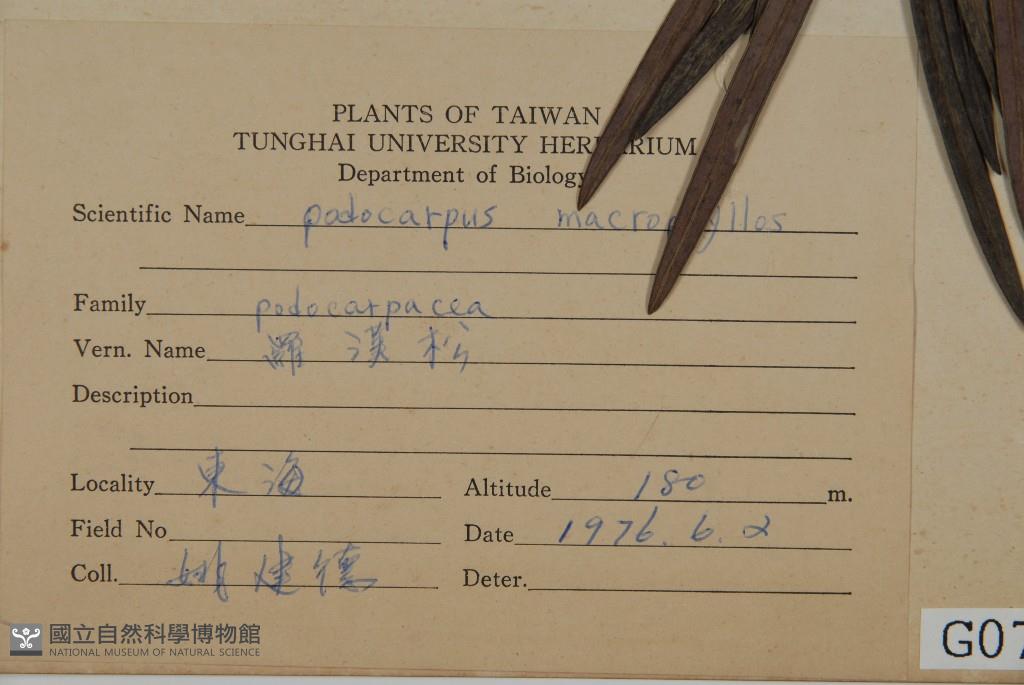 PLANTS OF TAIWAN
TUNGHAI UNIVERSITY HERBARIUM
Department of Biology
Scientific Name podocarpus macrophyllos
Family podocarpacea
Vern. Name 羅漢松
Description
Locality 東海 Altitude 180 m.
Field No Date 1976. 6. 2
Coll. 姚建德 Deter.
國立自然科學博物館
NATIONAL MUSEUM OF NATURAL SCIENCE
G07